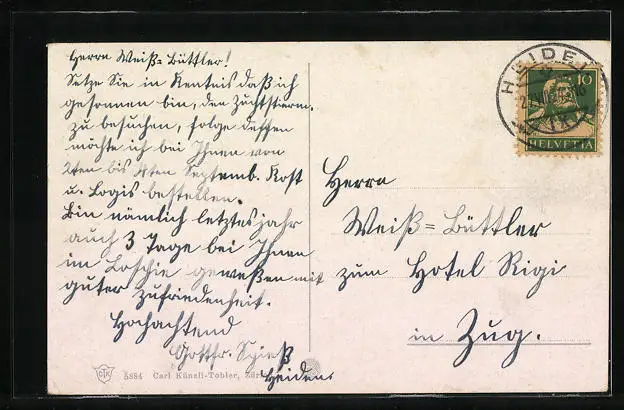 Herrn Weiß=Büttler!
Setze Sie in Kentnis daß ich
gesonnen bin, den Zuchtstierm.
zu besuchen, folge dessen
möchte ich bei Ihnen von
2ten bis 4ten Septemb. Kost
u. Logis bestellen.
Bin nämlich letztes jahr
auch 3 Tage bei Ihnen
im Loschie geweßen mit
guter zufriedenheit.
Hochachtend
Gottfr. Schieß
Heiden
5884 Carl Künzli-Tobler, Zür
CTK
HEIDE
10
HELVETIA
Herrn
Weiß=Büttler
zum Hotel Rigi
in Zug.